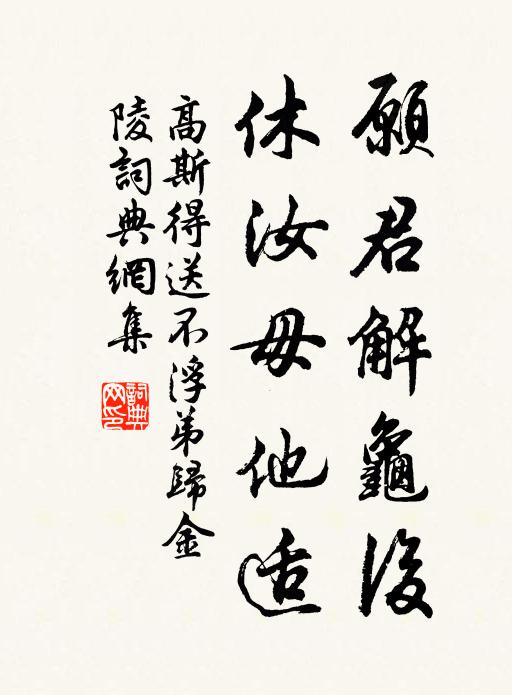 願君解龜後
休汝毋他适
高斯得送不浮弟歸金
陵詞典網集
詞典網印